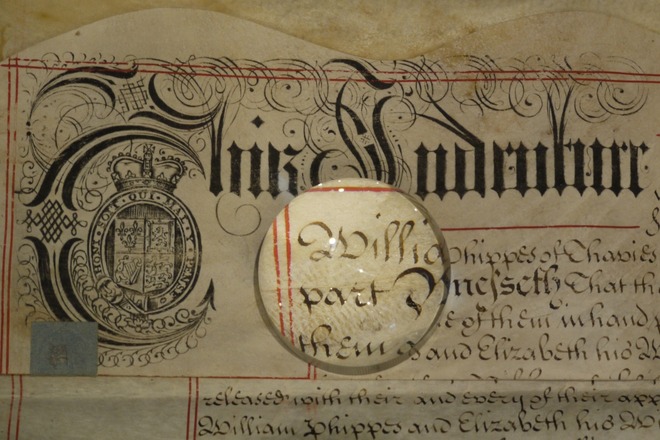 This Indenture
HONI SOIT QUI MAL Y PENSE
Willia Phippes of Thavies
part Witnesseth That th
them e of them in hand p
and Elizabeth his W
released with their and every of their app
William Phippes and Elizabeth his W